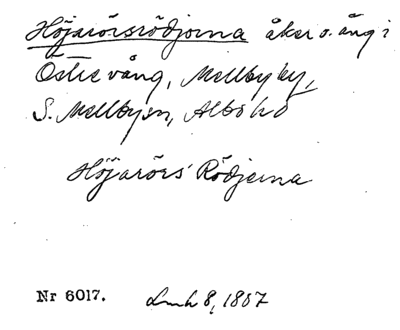 Höjarörsrödjorna åker o. äng i
Östre vång, Mellby by,
S. Mellby sn, Albo hd
Höjarörs Rödjerna
Nr 6017. Lmh 8, 1807